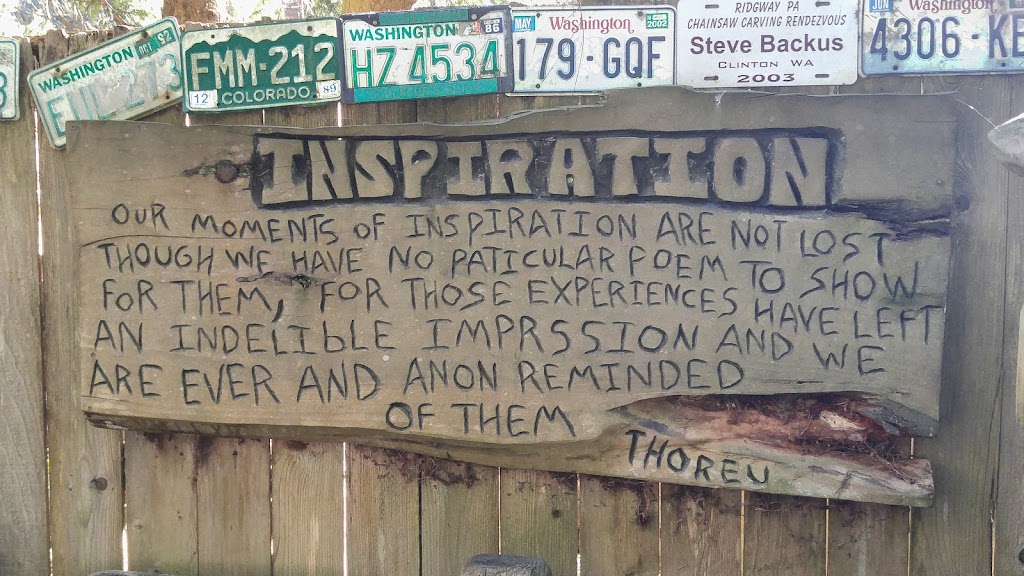 WASHINGTON OCT 92
FMM-212
12 COLORADO 89
WASHINGTON 86
HZ 4534
MAY Washington 2002
179-GQF
RIDGWAY PA
CHAINSAW CARVING RENDEZVOUS
Steve Backus
CLINTON WA
2003
JUN Washington
4306-KE
INSPIRATION
OUR MOMENTS OF INSPIRATION ARE NOT LOST
THOUGH WE HAVE NO PATICULAR POEM TO SHOW
FOR THEM, FOR THOSE EXPERIENCES HAVE LEFT
AN INDELIBLE IMPRSSION AND WE
ARE EVER AND ANON REMINDED
OF THEM
THOREU